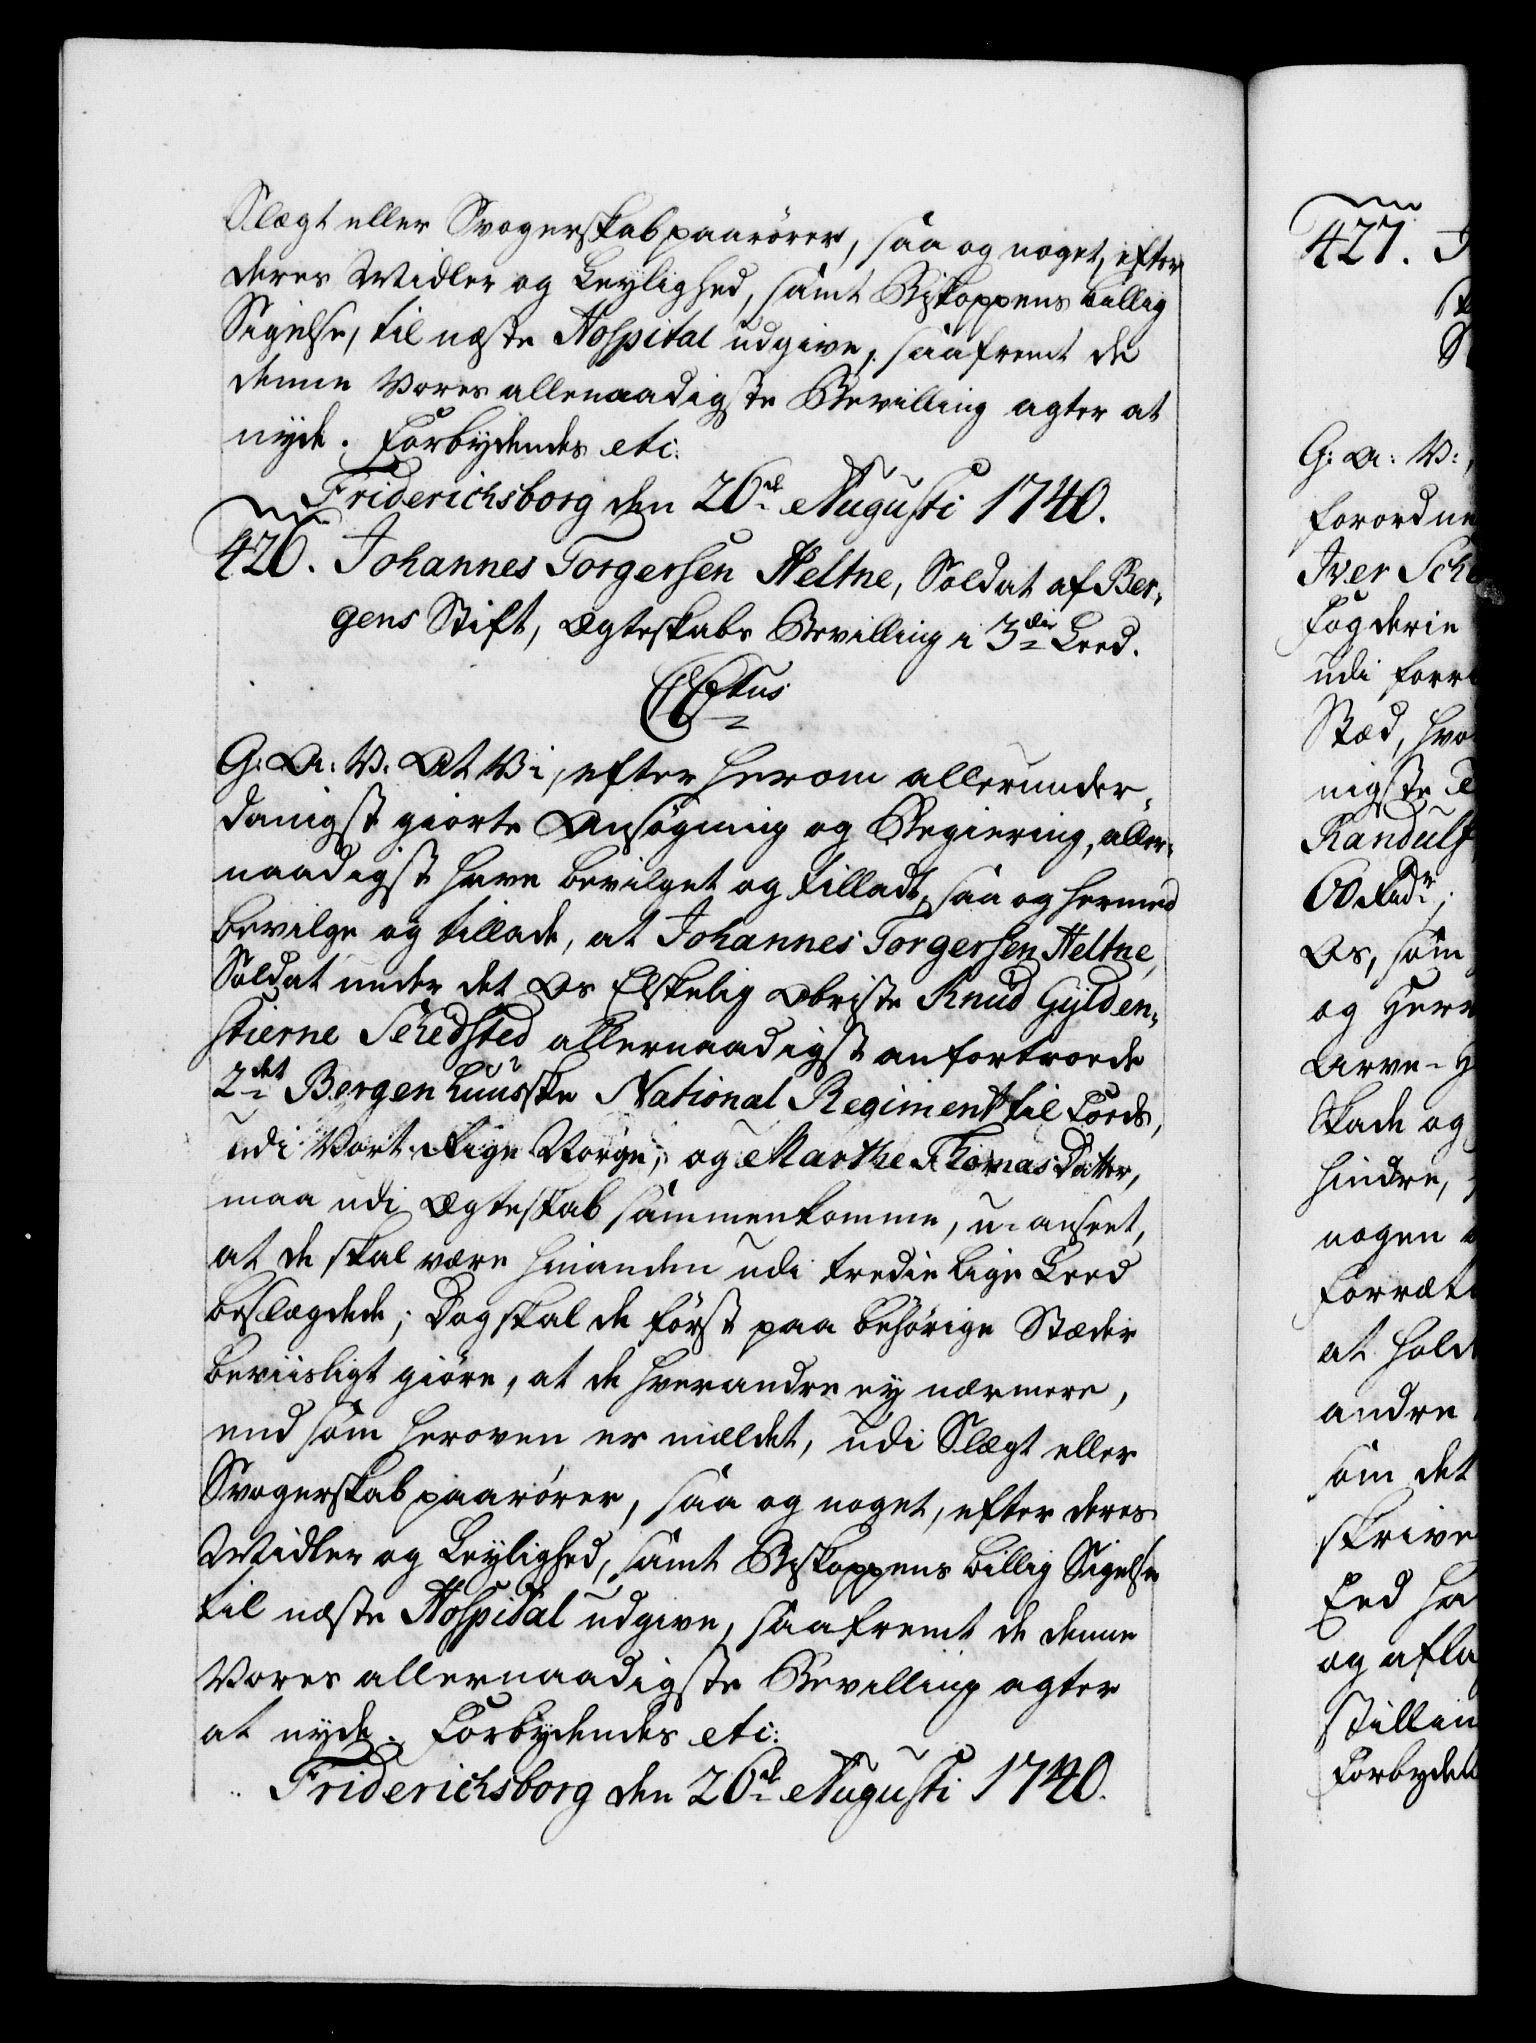 Slægt eller Svogerskab paarører, saa og noget, efter
deres Midler og Leylighed, samt Biskoppens billig
Sigelse, til næste Hospital udgive, saafremt de
denne Vores allernaadigste Bevilling agter at
nyde. Forbydendes etc:
Friderichsborg den 26de Augusti 1740.
426. Johannes Torgersen Heltne, Soldat af Ber-
gens Stift, Ægteskabs Bevilling i 3die Leed.
CCtus
G: A: V: At Vi, efter herom allerunder-
danigst giorte Ansøgning og Begiering, aller-
naadigst have bevilget og tilladt, saa og hermed
bevilge og tillade, at Johannes Torgersen Heltne,
Soldat under det Os Elskelig Obriste Knud Gylden-
stierne Sehedsted allernaadigst anfortroede
2det Bergenhuusske National Regiment til Fods,
udi Vort Rige Norge, og Marthe Thomas Datter,
maa udi Ægteskab sammenkomme, u-anseet,
at de skal være hinanden udi tredie lige Leed
beslægtede; Dog skal de først paa behørige Stæder
beviisligt giøre, at de hverandre ey nærmere,
end som heroven er meldet, udi Slægt eller
Svogerskab paarører, saa og noget, efter deres
Midler og Leylighed, samt Biskoppens billig Sigelse
til næste Hospital udgive, saafremt de denne
Vores allernaadigste Bevilling agter
at nyde. Forbydendes etc:
Friderichsborg den 26de Augusti 1740.
427.
G: A: V:
forordne
Iver Sch
Fogderie
udi forr
Stæd, hvo
nigste
Randulf
60 Rdr;
Os, som
og Herr
Arve-H
Skade og
hindre,
nogen
Forræt
at hold
andre
som det
skrive
Eed ha
og afla
stillin
Forbyde